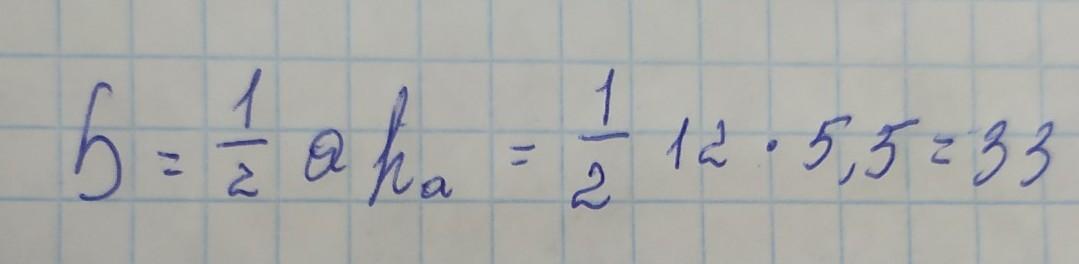 S = 1/2 a hₐ = 1/2 12 · 5,5 = 33